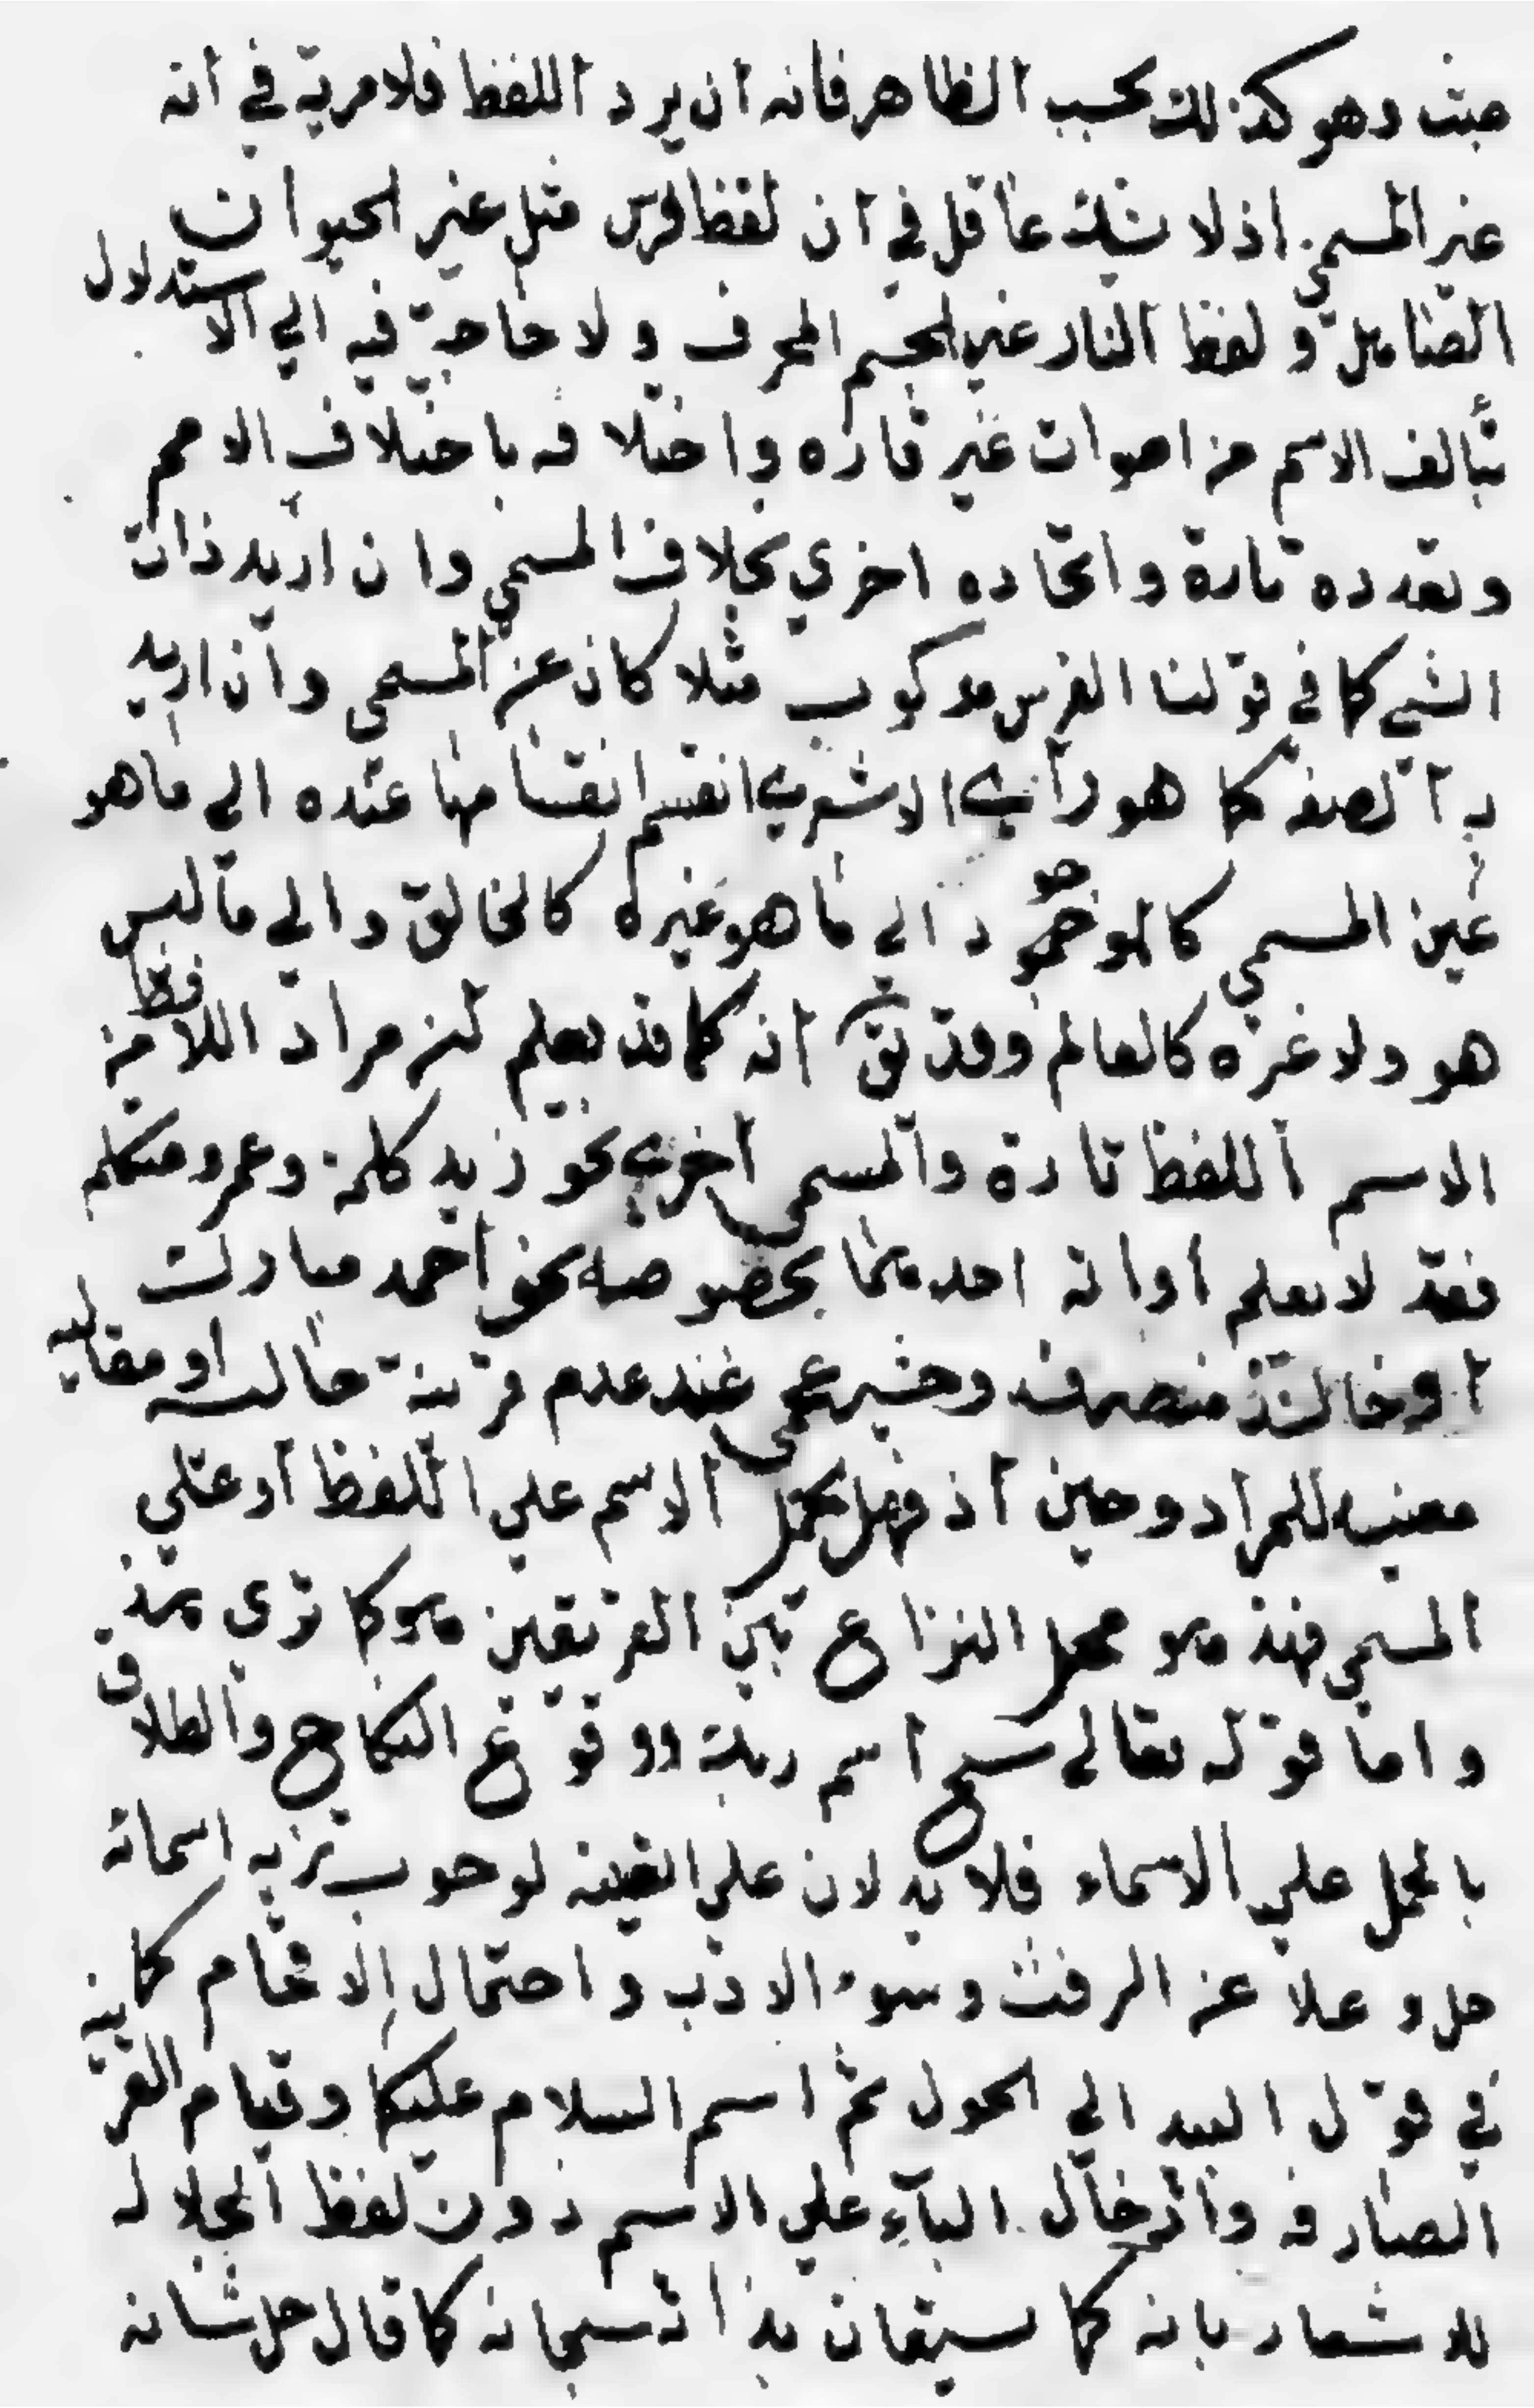 عبث وهو كذلك بحسب الظاهر فانه ان يرد اللفظ فلا مرية في انه
غير المسمي اذ لا يشك عاقل في ان لفظ فرس مثل غير الحيوان
الصاهل و لفظ النار غير الجسم المحرف ولا حاجة فيه الي الاستدلال
بتألف الاسم من اصوات غير قاره واختلافه باختلاف الامم
وتعدده تارة واتحاده اخري بخلاف المسمي وان اريد ذات
الشي كما في قولنا الفرس مركوب مثلا كان عين المسمي وان اريد
به الصفة كما هو رأي الاشعري انقسم انقسامها عنده الي ما هو
عين المسمي كالموجود والي ما هو غيره كالخالق والي ما ليس
هو ولا غيره كالعالم وقد يق انه كما قد يعلم ان مراد اللافظ من
الاسم اللفظ تارة والمسمي اخري نحو زيد كلمة وعمرو متكلم
فقد لا يعلم ارادته احديهما بخصوصه نحو احمد مبارك
او خالد منصرف وحينئذ عند عدم قرينة حالية او مقالية
معينه للمراد وحين اذ فهل يحمل الاسم علي اللفظ او علي
المسمي فهذ هو محل النزاع بين الفريقين وهو كما تري هذ
واما قوله تعالي سبح اسم ربك ووقوع النكاح والطلاق
بالحمل علي الاسماء فلا يدلان علي العينه لوجوب تنزيه اسمائه
جل و علا عن الرفث وسوء الادب واحتمال الاقحام كما
في قول لبيد الي الحول ثم اسم السلام عليكما وقيام القرينه
الصارفه وادخال الباء علي الاسم دون لفظ الجلاله
للاشعار بانه كما يستعان بذاته سبحانه كما قال جل شانه